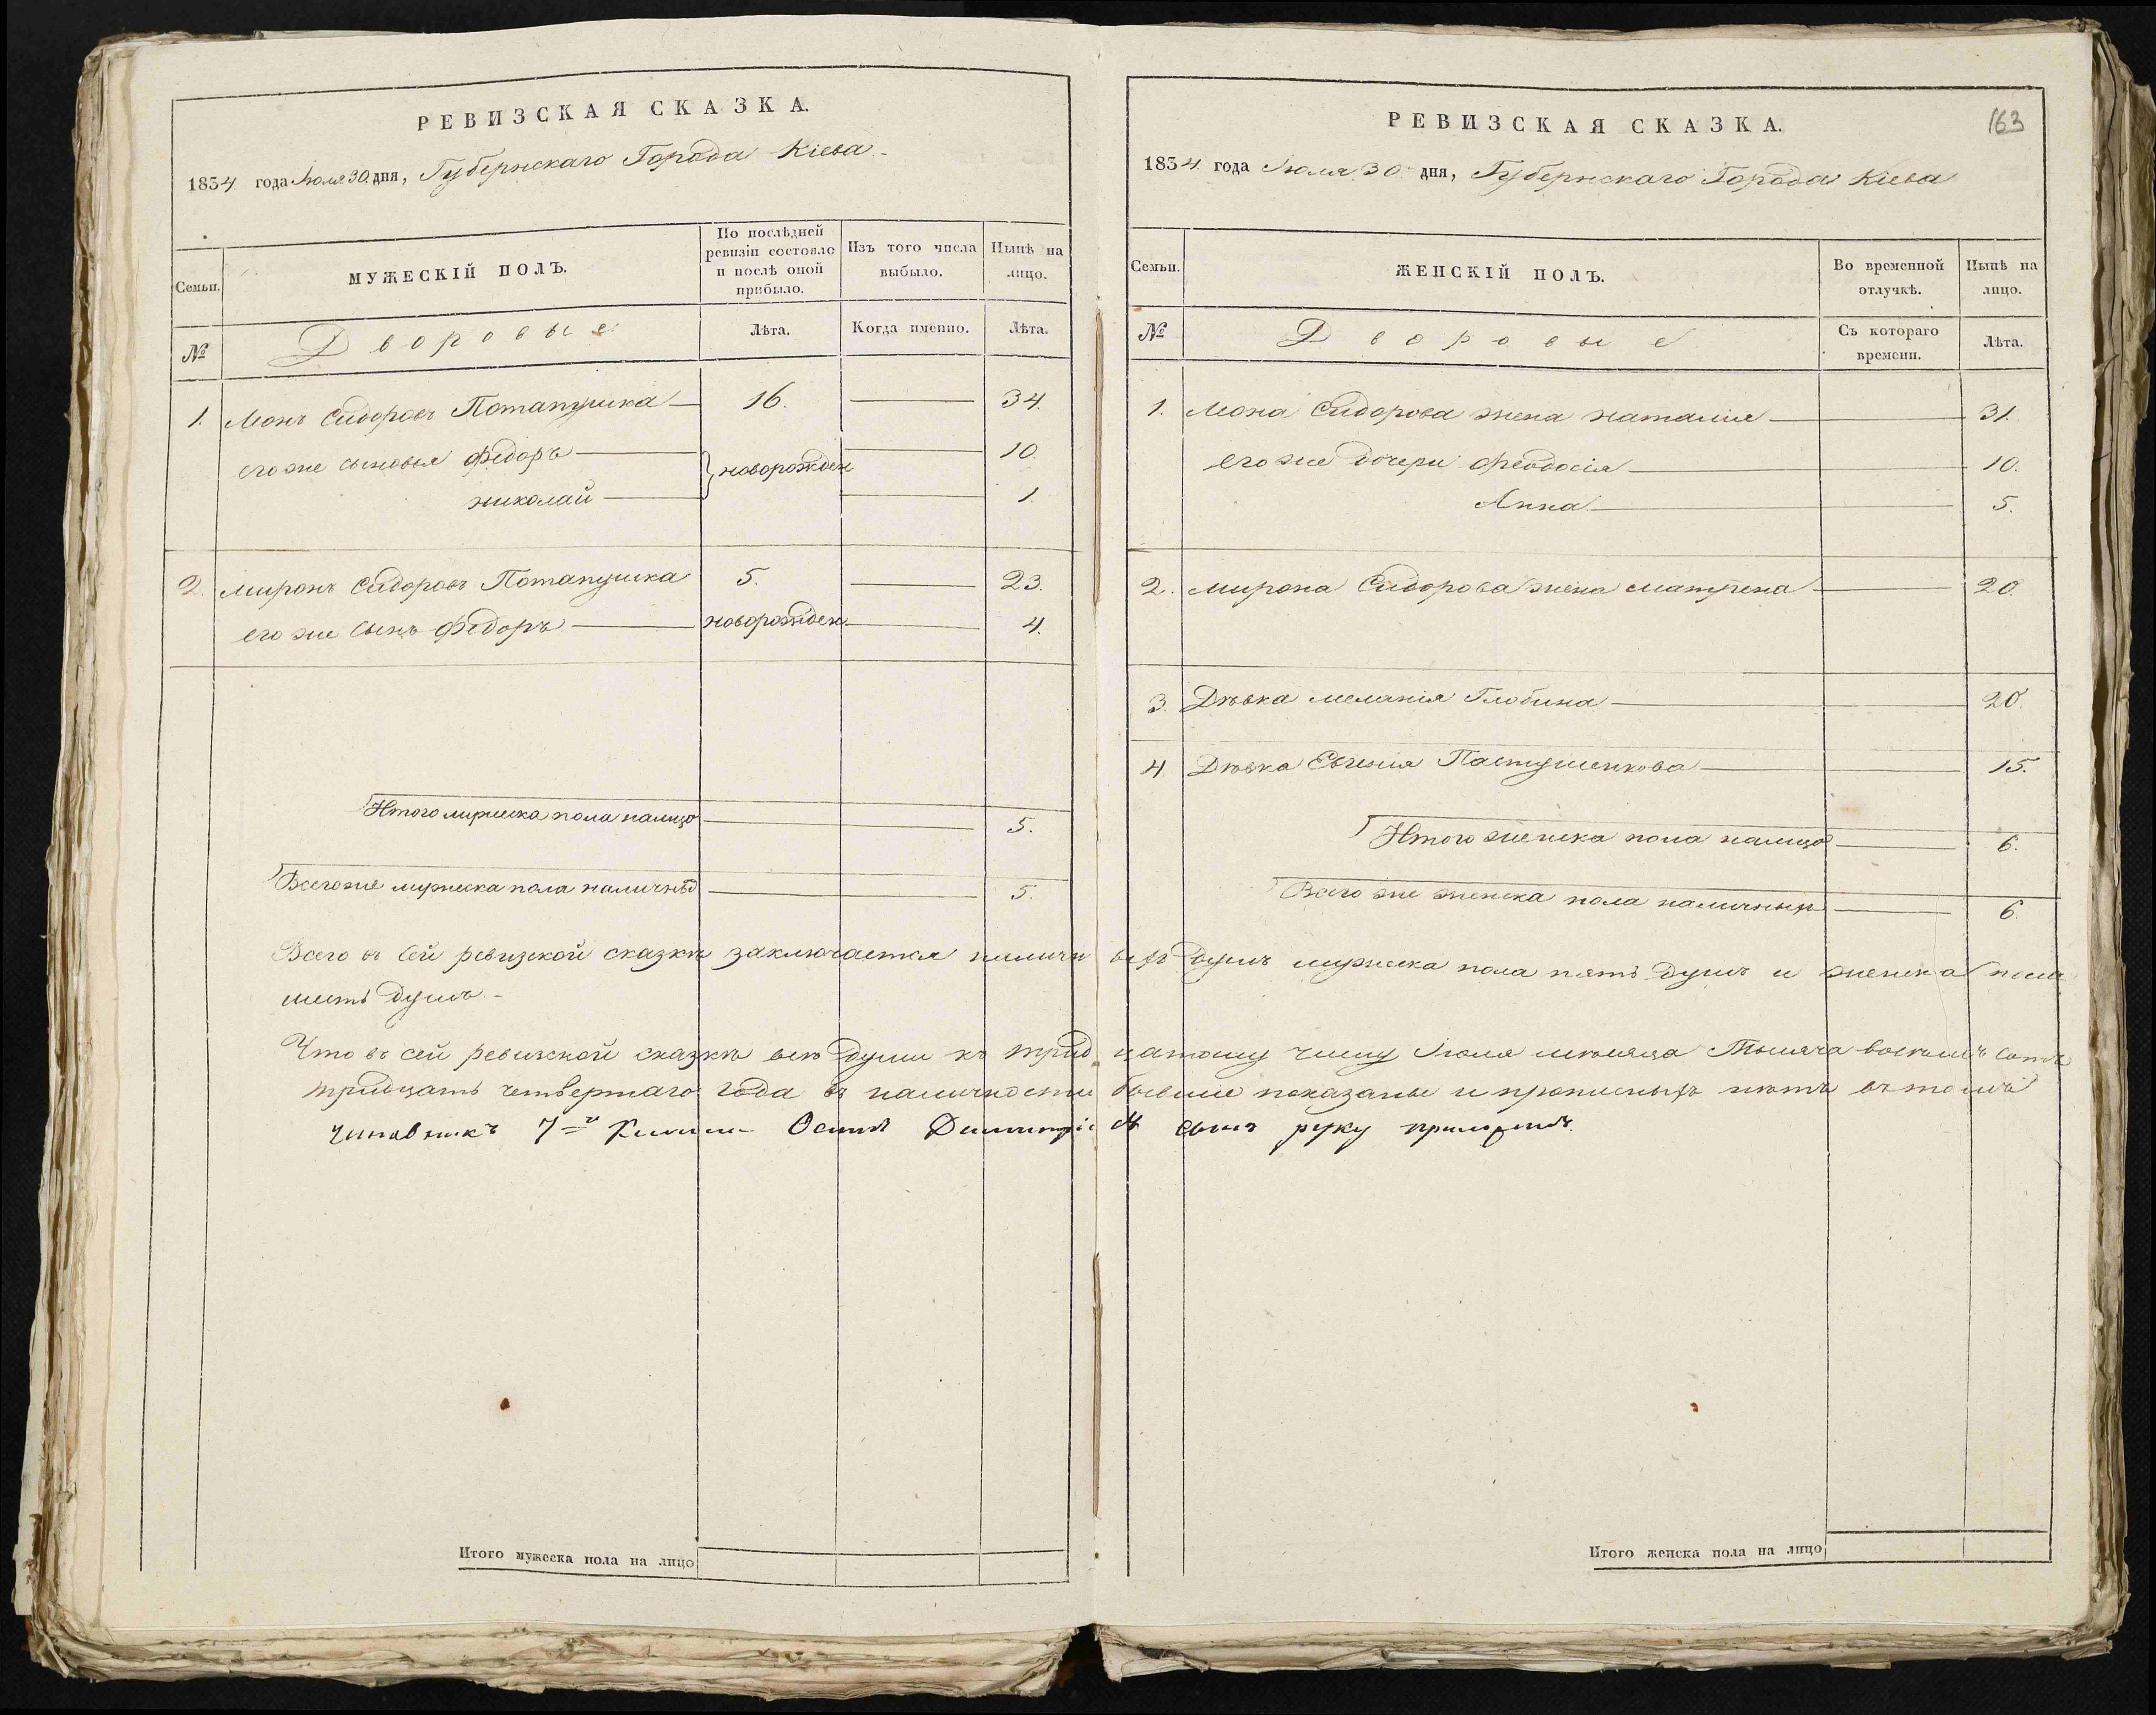 РЕВИЗСКАЯ СКАЗКА.
1834 года Июля 30 дня, Губернскаго Города Кіева
Семьи.
МУЖЕСКІЙ ПОЛЪ.
По послѣдней ревизіи состояло и послѣ оной прибыло.
Изъ того числа выбыло.
Нынѣ на лицо.
№
Дворовые
Лѣта.
Когда именно.
Лѣта.
1. Монъ Сидоровъ Потапушка 16. 34.
его же сыновья Федоръ новорожден 10.
николай 1.
2. миронъ Сидоровъ Потапушка 5. 23.
его же сынъ Федоръ новорожден 4.
Итого мужеска пола налицо 5.
Всего же мужеска пола наличныхъ 5.
РЕВИЗСКАЯ СКАЗКА.
163
1834 года Июля 30 дня, Губернскаго Города Кіева
Семьи.
ЖЕНСКІЙ ПОЛЪ.
Во временной отлучкѣ.
Нынѣ на лицо.
№
Дворовые
Съ котораго времени.
Лѣта.
1. Мона Сидорова жена наталія 31.
его же дочери Феодосія 10.
Анна 5.
2. мирона Сидорова жена матрена 20.
3. Дѣвка меланія Глобина 20.
4. Дѣвка Евгенія Пастушенкова 15.
Итого женска пола налицо 6.
Всего же женска пола наличныхъ 6.
Всего въ сей ревизской сказкѣ заключается наличныхъ душъ мужеска пола пять душъ и женска пола
шесть душъ
Что въ сей ревизской сказкѣ всѣ души къ тридцатому числу Июля мѣсяца Тысяча восемь сотъ
тридцать четвертаго года въ наличности бывшіе показаны и прописныхъ нѣтъ въ томъ
чиновникъ 7-го Класса Осипъ Димитріевъ сынъ руку приложилъ
Итого мужеска пола на лицо
Итого женска пола на лицо